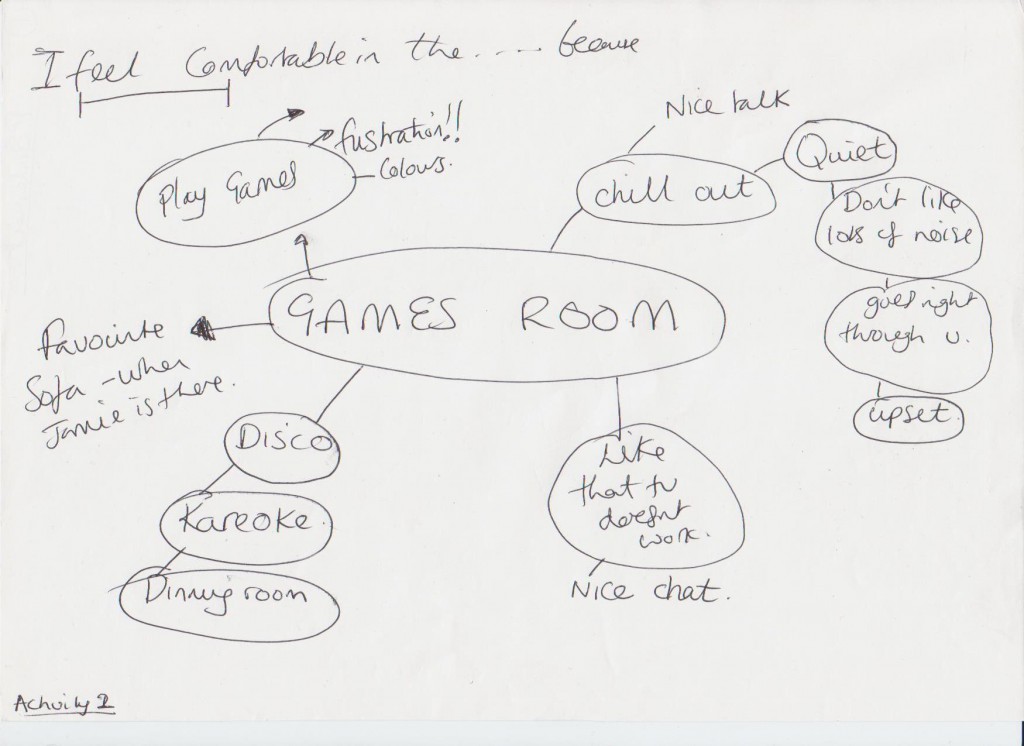 I feel Comfortable in the..... because
Nice talk
fustration!!
Colours.
Play Games
chill out
Quiet
Don't like
lots of noise
goes right
through u.
upset.
GAMES ROOM
Favourite
Sofa - when
Jamie is there.
DISCO
Kareoke.
Dinning room
Like
that tv
doesnt
work.
Nice chat.
Activity 2